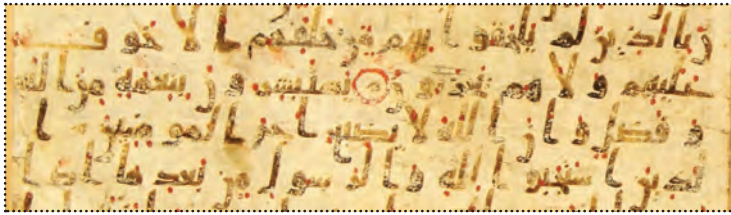 ن بالذين لم يلحقوا بهم من خلفهم الا خوف
عليهم ولا هم يحزنون يستبشرون بنعمه من الله
وفضل وان الله لا يضيع اجر المومنين ا
لذين استجبوا لله والرسول من بعد ما اصا